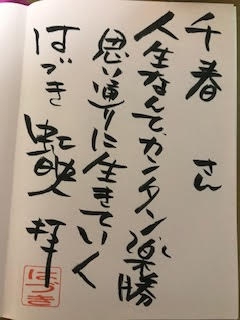 千春 さん
人生なんて、カンタン楽勝
思い通りに生きていく
はづき 虹映 拝
はづき